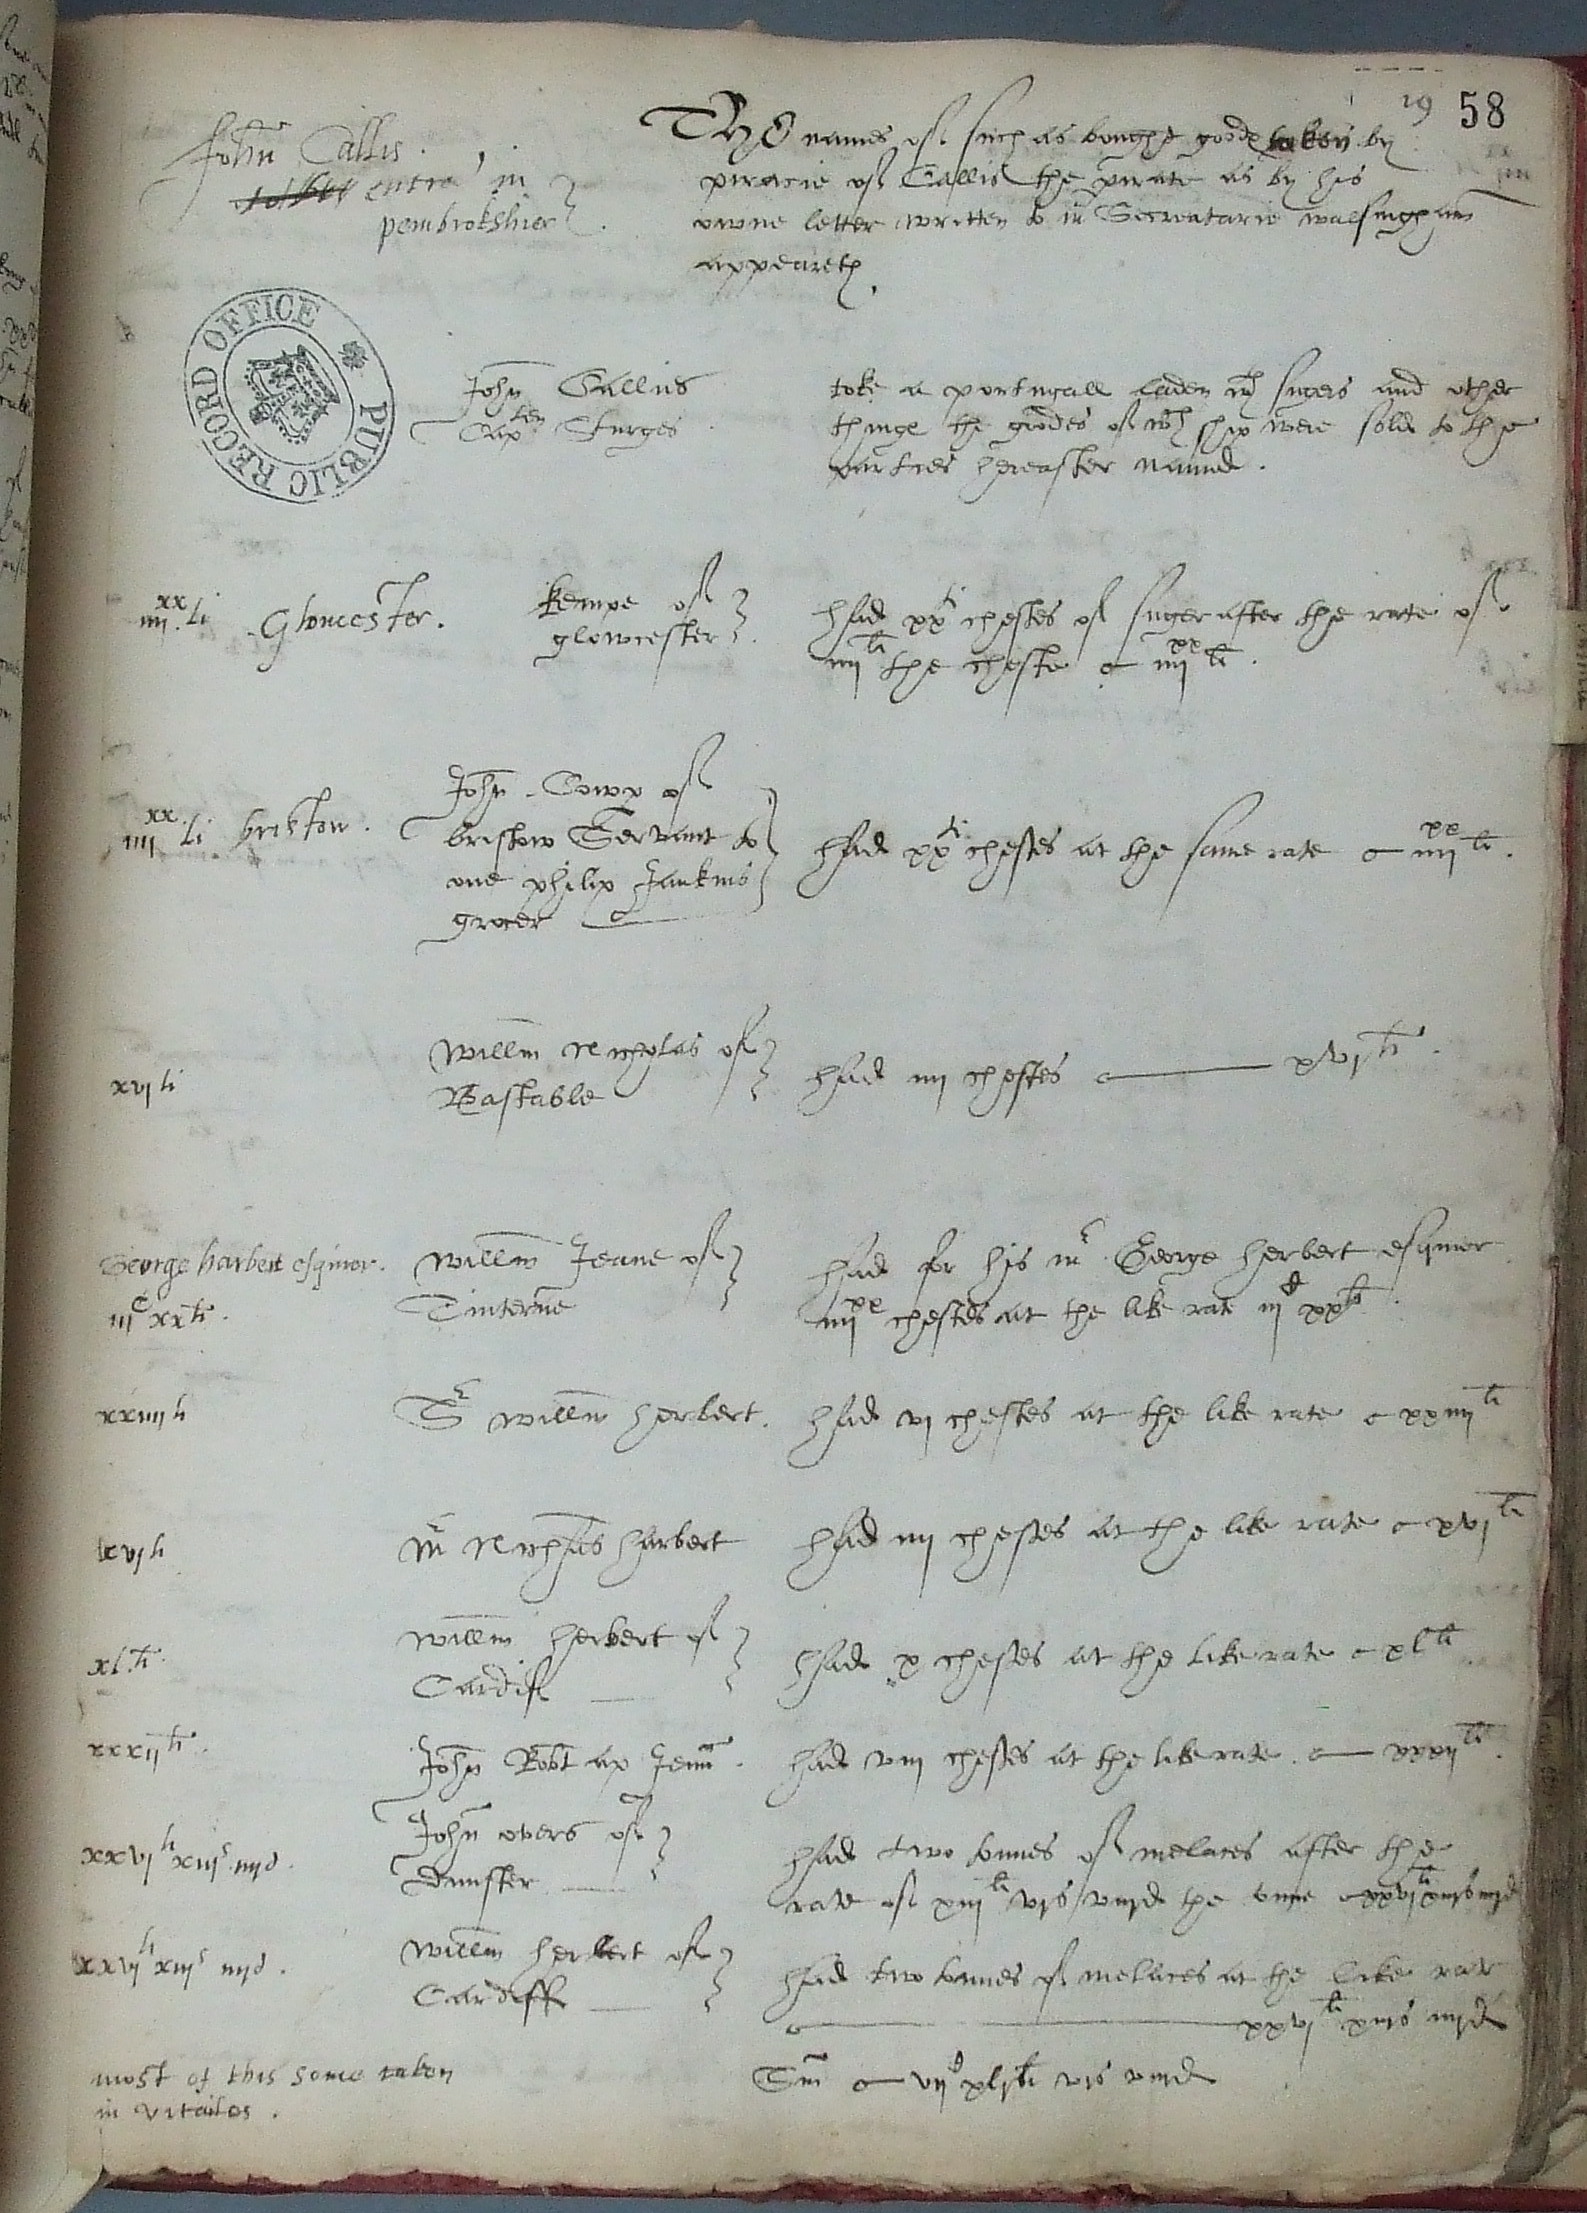 19 58
John Callis.
entred in
pembrokshier.
The names of such as bought goodes taken by
piracie of Callis the pirate as by his
owne letter written to mr Secreatarie walsingham
appeareth.
PUBLIC RECORD OFFICE
John Callis
Capten Sturges
toke a portugall laden wth sugers and other
thinges the goodes of wch ship were sold to the
parties hereafter named.
iiijxx li Gloucester.
kempe of
glowcester
had xxti chestes of suger after the rate of
iiijli the cheste iiijxx li.
iiijxx li bristow.
John Cowp of
bristow Servant to
one philip Jankins
grocer
had xxti chestes at the same rate iiijxx li.
xvj li
Willm Nicholas of
Bastable
had iiij chestes xvjli.
George harbert esquier.
iijC xxli.
Willm Jeane of
Tinterne
had for his mr George herbert esquier
iiijxx chestes at the like rate iijC xxli.
xxiiij li
Sr Willm herbert.
had vj chestes at the like rate xxiiijli
xvj li
mr Nichas harbert
had iiij chestes at the like rate xvjli
xl.li.
Willm herbert of
Cardif
had x chestes at the like rate xlli.
xxxijli.
John Robt ap Jeum.
had viij chestes at the like rate. xxxijli.
xxvjli xiijs iiijd.
John overs of
Dunster
had two tonnes of melaces after the
rate of xiijli vjs viijd the tonne xxvjli xiijs iiijd
xxvjli xiijs iiijd.
Willm herbert of
Cardiff
had two tonnes of melaces at the like rate
xxvjli xiijs iiijd
most of this some taken
in vitailes.
Sm vijC xljli vjs viijd